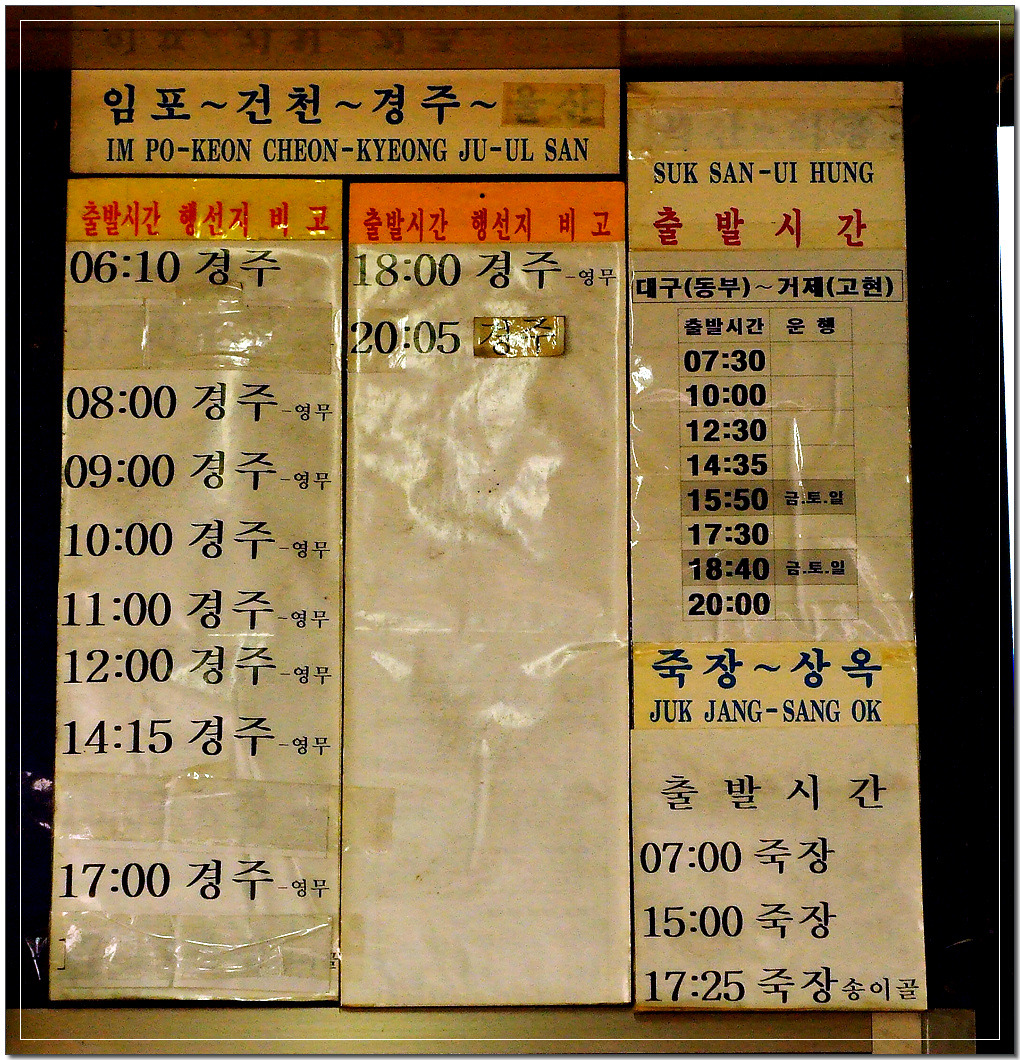 임포~건천~경주~울산
IM PO-KEON CHEON-KYEONG JU-UL SAN
출발시간 행선지 비고
06:10 경주
08:00 경주-영무
09:00 경주-영무
10:00 경주-영무
11:00 경주-영무
12:00 경주-영무
14:15 경주-영무
17:00 경주-영무
출발시간 행선지 비고
18:00 경주-영무
20:05 경주
SUK SAN-UI HUNG
출발시간
대구(동부)~거제(고현)
출발시간 운행
07:30
10:00
12:30
14:35
15:50 금.토.일
17:30
18:40 금.토.일
20:00
죽장~상옥
JUK JANG-SANG OK
출발시간
07:00 죽장
15:00 죽장
17:25 죽장송이골